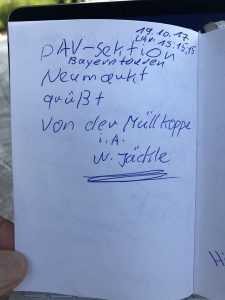 19.10.17
Uhr 13:15:35
DAV-Sektion
Bayerntouren
Neumarkt
grüßt
von der Müllkoppe
i.A.
W. Jäckle